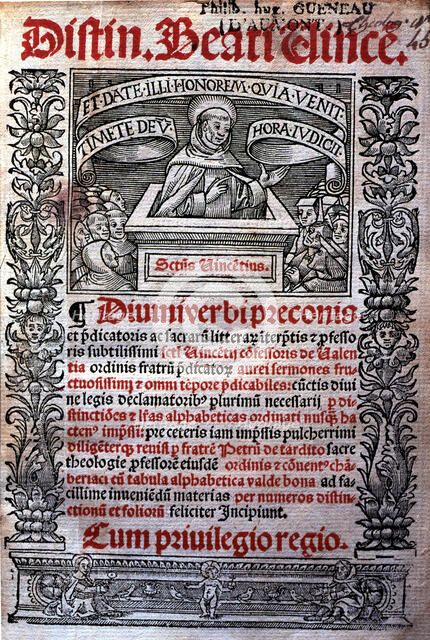 Philib. hug. GUENEAU
(D'AUMONT)
Distin. Beati Uincē.
ET·DATE·ILLI·HONOREM·QVIA·VENIT·
TIMETE DEV̄·
HORA·IVDICII·
Sctūs Uincētius.
¶ Diui verbi preconis
et p̄dicatoris ac sacrarū litterarꝫ īterp̄tis ⁊ p̄fesso
ris subtilissimi sctī Uincētij cōfessoris de Ualen
tia ordinis fratrū p̄dicatoꝝ aurei sermones fru
ctuosissimi ⁊ omni tēpore p̄dicabiles: cūctis diui
ne legis declamatoribꝰ plurimū necessarij p di-
stinctiōes ⁊ lr̄as alphabeticas ordinati nusꝗ̄ ha
ctenꝰ imp̄ssi: pre ceteris iam imp̄ssis pulcherrimi
diligēterqꝫ reuisi p fratrē Petrū de tardito sacre
theologie p̄fessorē eiusdē ordinis ⁊ cōuentꝰ chā-
beriaci cū tabula alphabetica valde bona ad fa-
cillime inueniēdū materias per numeros distin-
ctionū et foliorū feliciter Incipiunt.
Cum priuilegio regio.